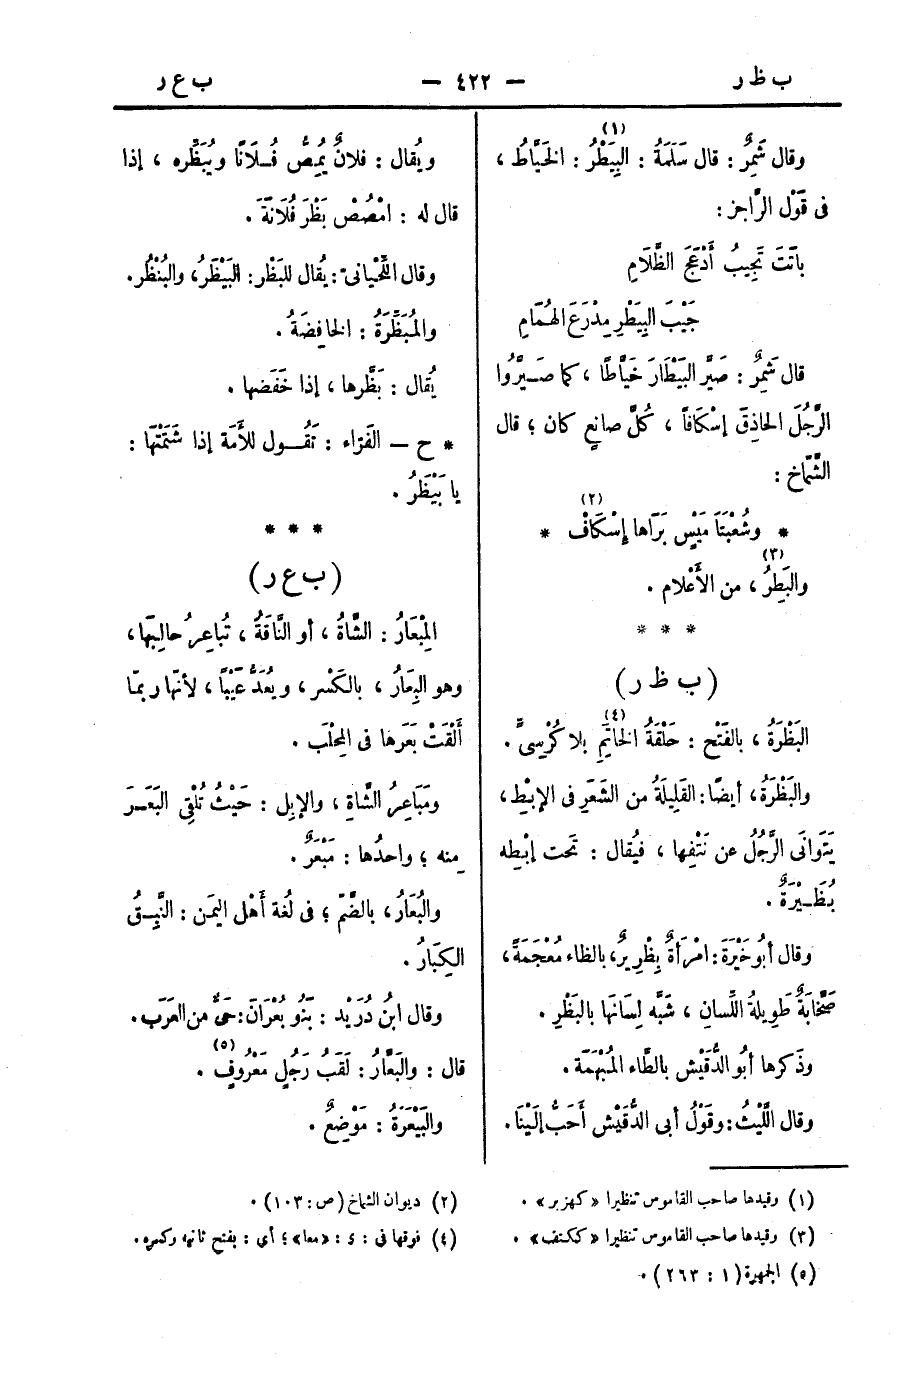 ب ظ ر — ٤٢٢ — ب ع ر
وقال شَمِرٌ : قال سَلَمَةُ : البِيَطْرُ (١) : الخَيَّاطُ ،
فى قَوْل الرَّاجز :
باتَتْ تَجِيبُ أَدْعَجَ الظَّلَامِ
جَيْبَ البِيَطْرِ مِدْرَعَ الهُمَامِ
قال شَمِرٌ : صَيَّر البَيْطَارَ خَيَّاطًا ، كما صَيَّرُوا
الرَّجُلَ الحاذِقَ إسْكَافًا ، كُلَّ صانِعٍ كان ؛ قال
الشَّمّاخ :
* وشُعْبَتَا مَيْسٍ بَرَاها إِسْكَافْ (٢) *
والبَطِرُ (٣) ، من الأَعْلام .
* * *
( ب ظ ر )
البَظْرَةُ ، بالفَتْح : حَلْقَةُ الخَاتِمِ (٤) بلا كُرْسِىٍّ .
والبَظْرَةُ ، أيضًا : القَلِيلَةُ من الشَعَرِ فى الإبْط ،
يَتَوانَى الرَّجُلُ عن نَتْفِها ، فيُقال : تَحت إبْطِه
بُظَيْرَةٌ .
وقال أبُو خَيْرَةَ : امْرَأةٌ بِظْرِيرٌ ، بالظاء مُعْجَمَةً ،
صَخَّابَةٌ طَوِيلةُ اللِّسانِ ، شَبَّه لِسَانَها بالبَظْرِ .
وذَكرها أبُو الدُّقَيْش بالطَّاء المُبْهَمَة .
وقال اللَّيْثُ : وقَوْلُ أبى الدُّقَيْش أَحَبُّ إلَيْنَا .
ويُقال : فلانٌ يُمِصُّ فُلَانًا ويُبَظِّره ، إذا
قال له : امْصُصْ بَظْرَ فُلَانَةَ .
وقال اللِّحْيانىّ : يُقال للبَظْر : البَيْظَرُ ، والبُنْظُر .
والمُبَظِّرَةُ : الخافِضَةُ .
يُقال : بَظَّرها ، إذا خَفَضها .
* ح — الفَرّاء : تَقُول للأَمَة إذا شَتَمْتَها :
يا بَيْظَرُ .
* * *
( ب ع ر )
المِبْعَارُ : الشَّاةُ ، أو النَّاقَةُ ، تُباعِرُ حالِبَها ،
وهو البِعَارُ ، بالكَسْر ، ويُعَدُّ عَيْبًا ، لأنّها ربمّا
أَلْقَتْ بَعَرها فى المِحْلَب .
ومَبَاعِرُ الشَّاةِ ، والإبِل : حَيْثُ تُلْقِى البَعَرَ
مِنه ؛ واحدُها : مَبْعَرٌ .
والبُعَارُ ، بالضَّمّ ؛ فى لُغة أَهْل اليمَن : النَّبِقُ
الكِبَارُ .
وقال ابنُ دُرَيْد : بَنُو بُعْرَانَ : حَىٌّ من العَرَب .
قال : والبَعَّارُ : لَقَبُ رَجُلٍ مَعْرُوفٍ (٥) .
والبَيْعَرَةُ : مَوْضِعٌ .
(١) وقيدها صاحب القاموس تنظيرا « كهزبر » . (٢) ديوان الشماخ (ص : ١٠٣) .
(٣) وقيدها صاحب القاموس تنظيرا « ككتف » . (٤) فوقها فى : ء : «معا» ؛ أى : بفتح ثانيه وكسره .
(٥) الجمهرة ( ١ : ٢٦٣ ) .